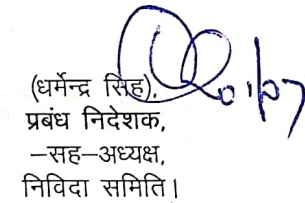 01/07
(धर्मेन्द्र सिंह),
प्रबंध निदेशक,
–सह–अध्यक्ष,
निविदा समिति।